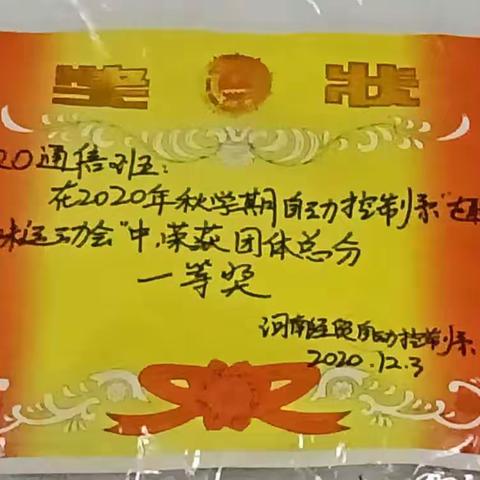 奖 状
20通信班:
在2020年秋学期自动控制系“趣
味运动会”中,荣获团体总分
一等奖
河南经贸自动控制系
2020.12.3